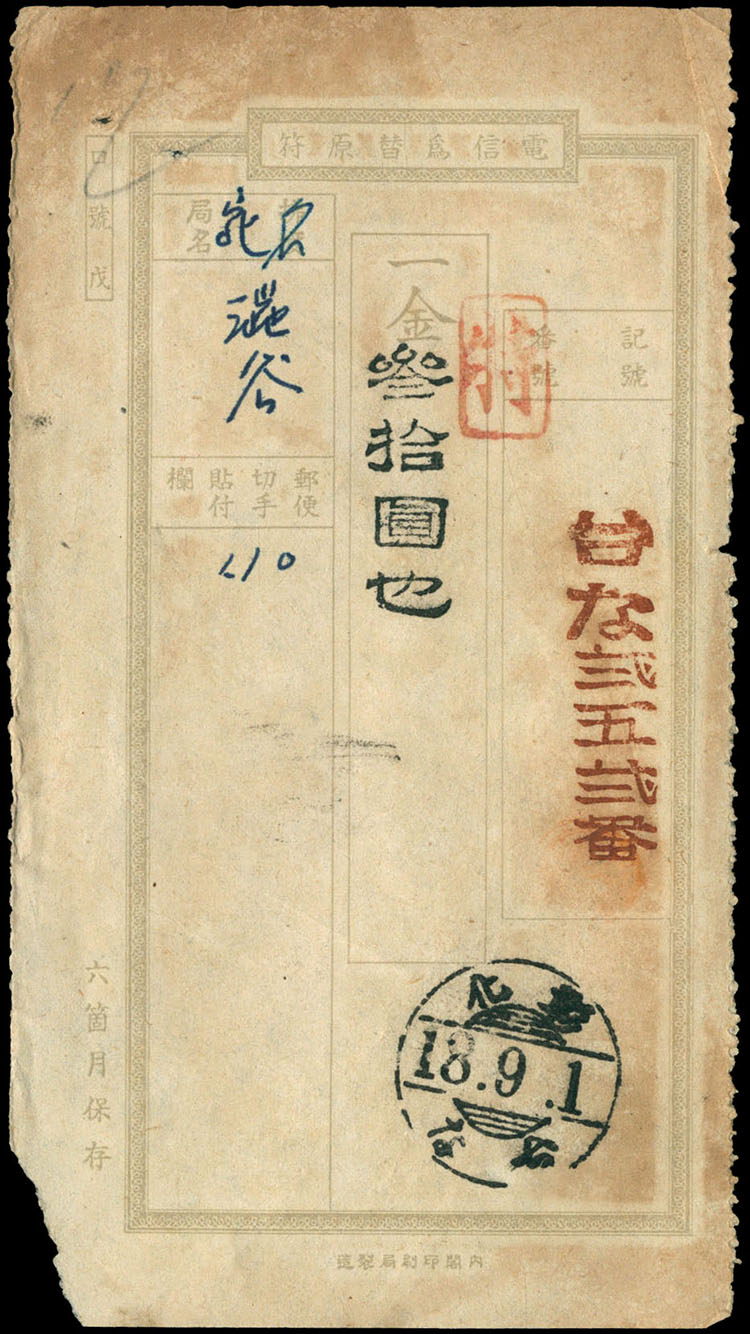 電信爲替原符
記號
番號
台な弎五弎番
一金
叄拾圓也
局名
宛名
澁谷
郵便切手貼付欄
口號戊
六箇月保存
18.9.1
内閣印刷局製造